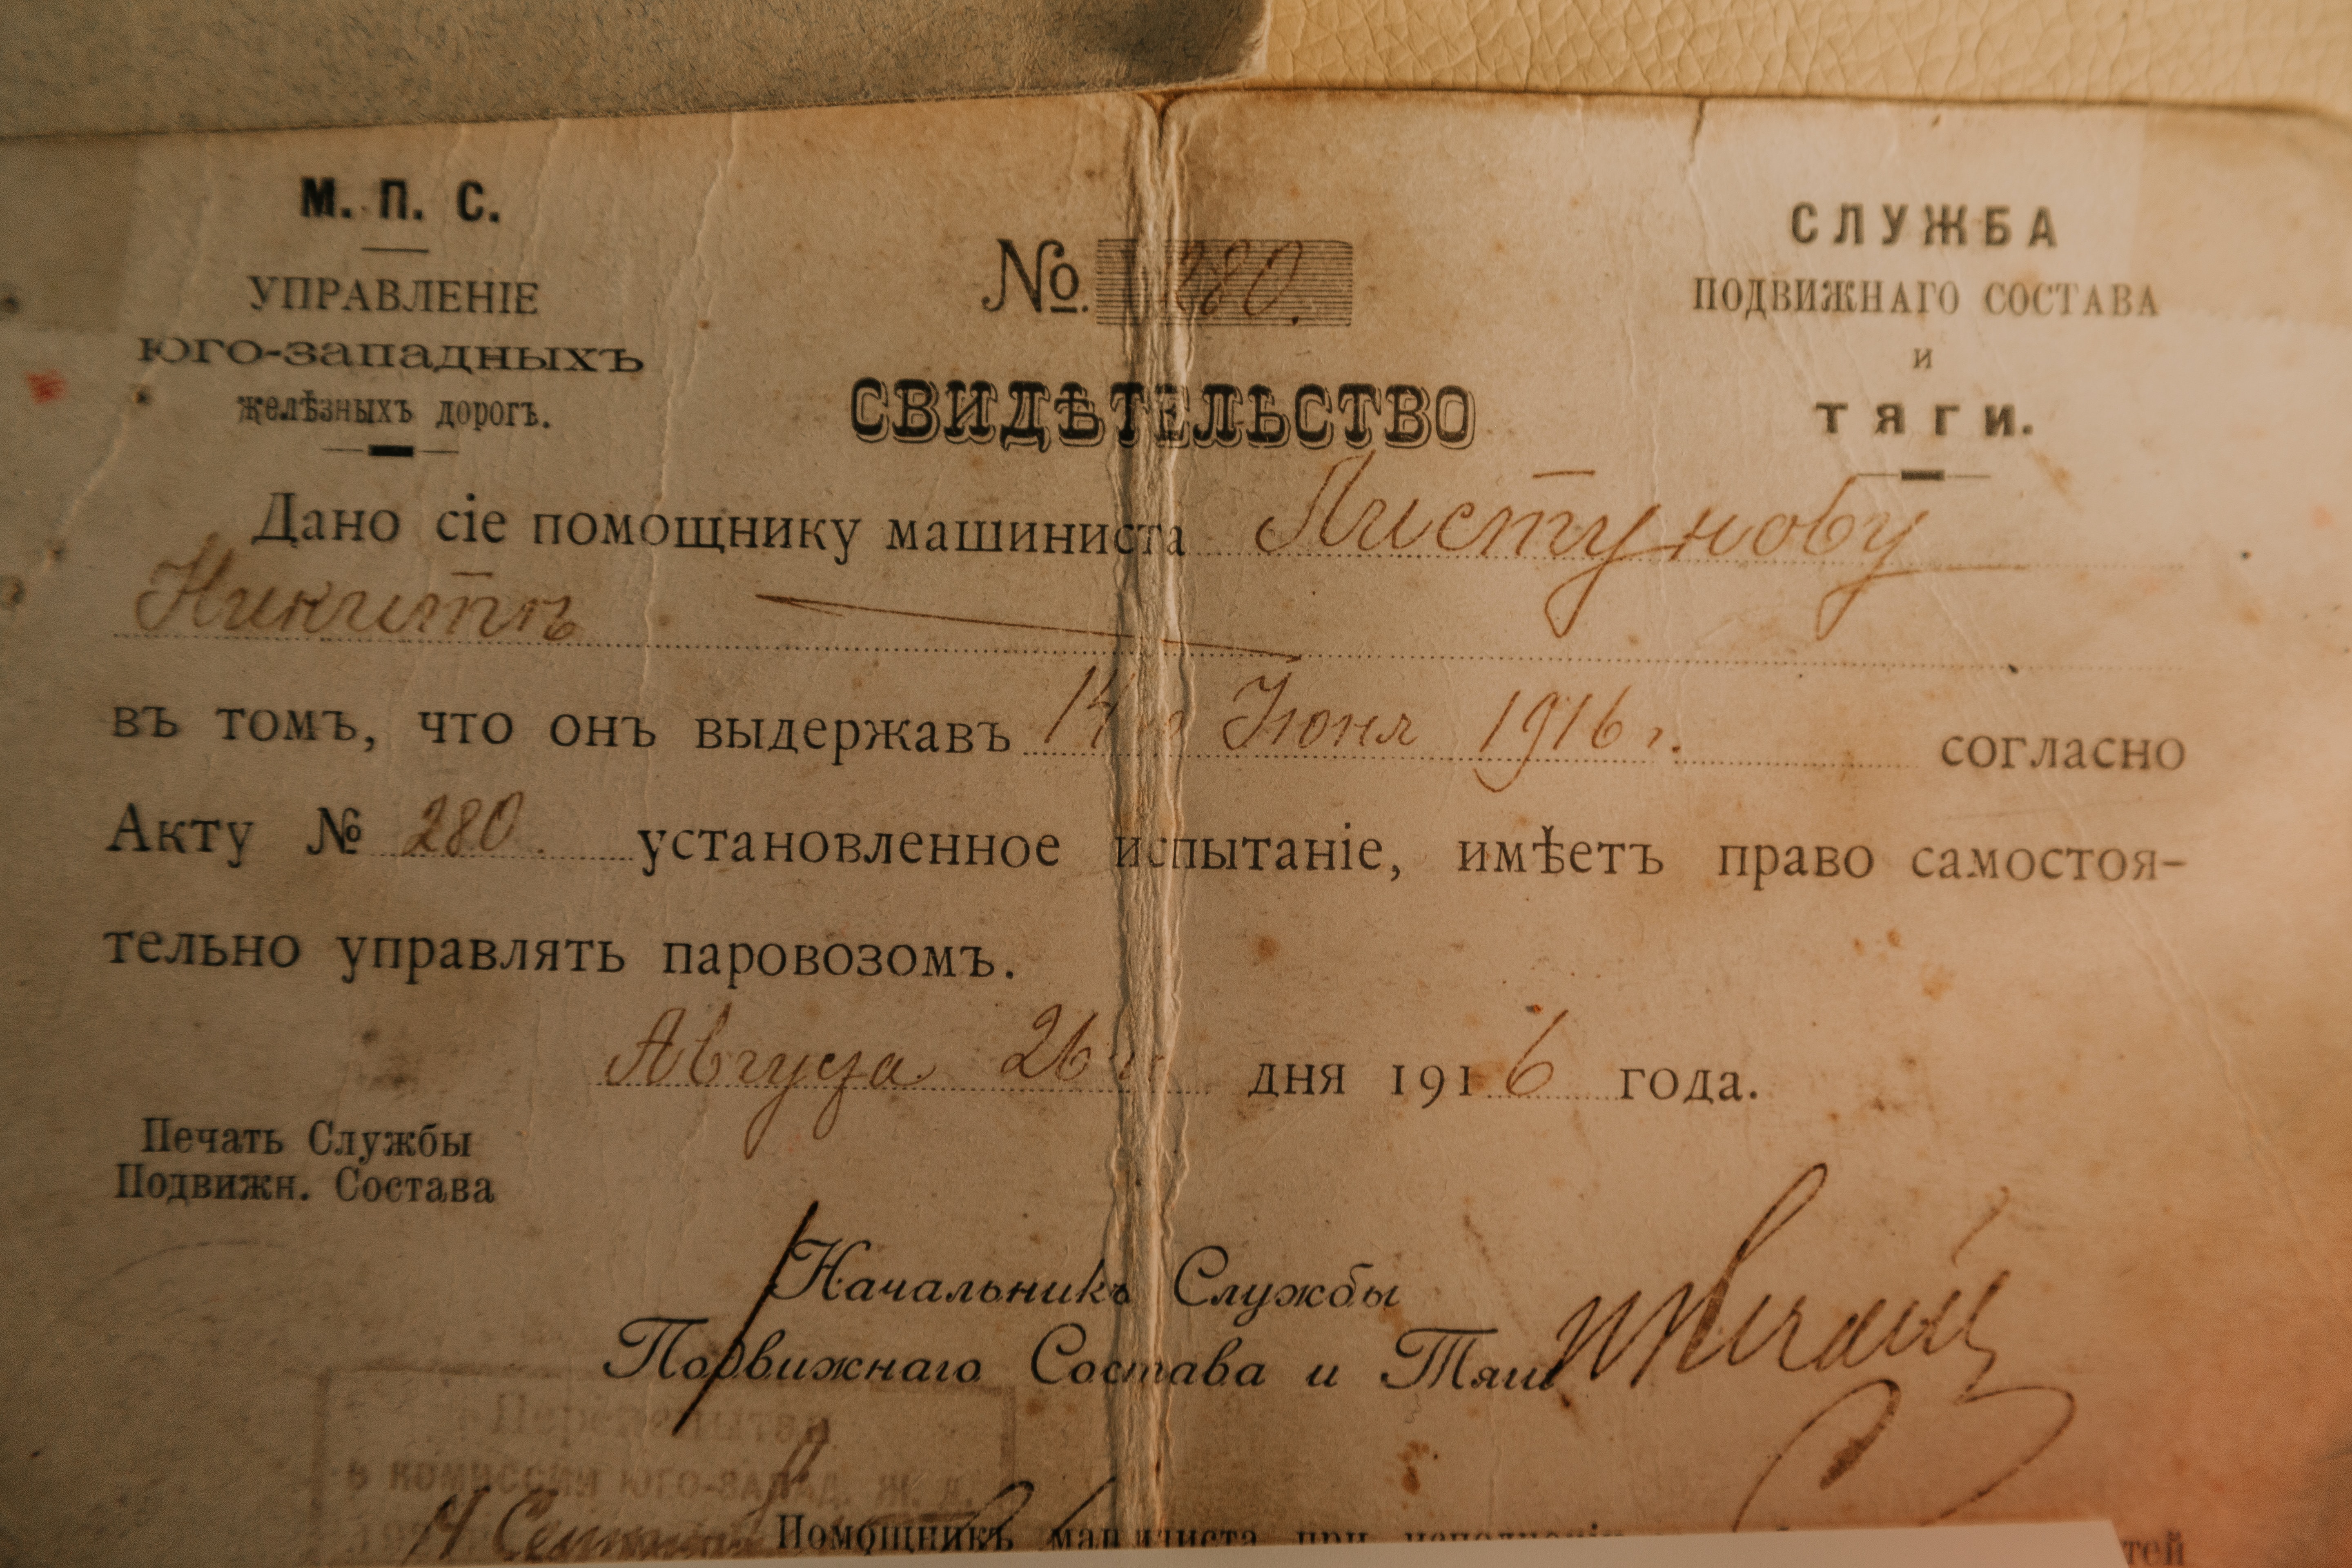 М. П. С.
УПРАВЛЕНІЕ
ЮГО-ЗАПАДНЫХЪ
желѣзныхъ дорогъ.
№ 280.
СВИДѢТЕЛЬСТВО
СЛУЖБА
ПОДВИЖНАГО СОСТАВА
и
ТЯГИ.
Дано сіе помощнику машиниста Листунову
Никитѣ
въ томъ, что онъ выдержавъ 14 Іюня 1916 г. согласно
Акту № 280. установленное испытаніе, имѣетъ право самостоя-
тельно управлять паровозомъ.
Августа 26 дня 1916 года.
Печать Службы
Подвижн. Состава
Начальникъ Службы
Подвижнаго Состава и Тяги
в комиссии Юго-Запад. Ж. Д.
Помощникъ машиниста при